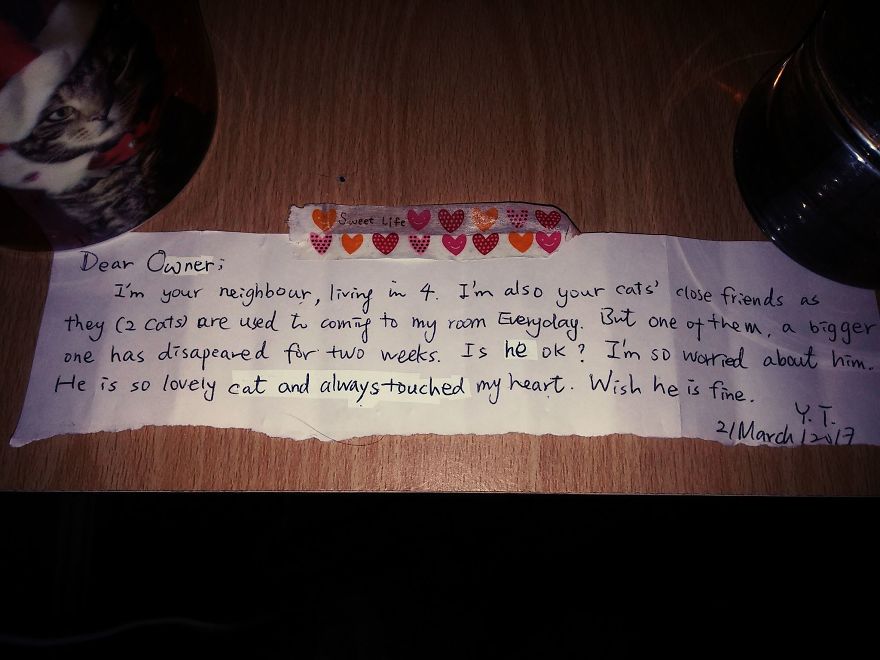 Sweet Life
Dear Owner;
I'm your neighbour, living in 4. I'm also your cats' close friends as
they (2 cats) are used to coming to my room Everyday. But one of them, a bigger
one has disapeared for two weeks. Is he ok? I'm so worried about him.
He is so lovely cat and always touched my heart. Wish he is fine.
Y.T.
21/March/2017